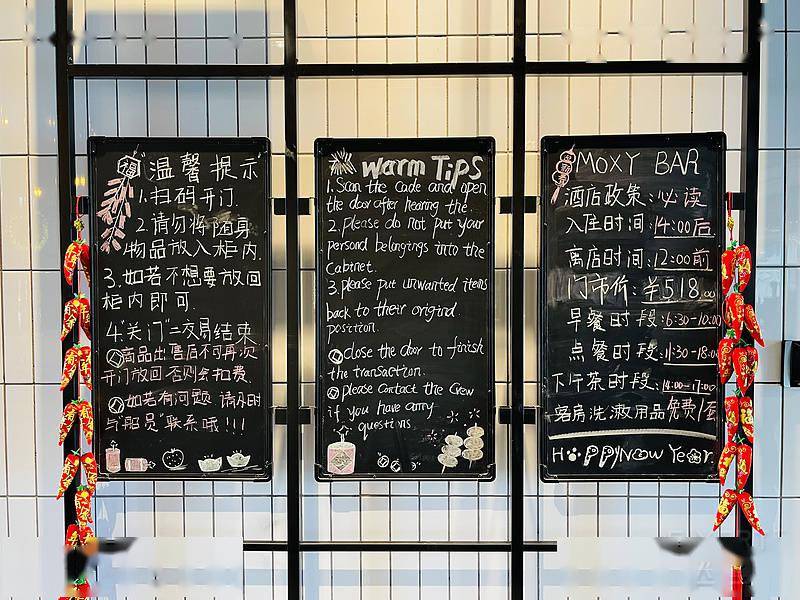 福
"温馨提示"
1.扫码开门.
2.请勿将随身
物品放入柜内.
3.如若不想要放回
柜内即可.
4.关门"=交易结束
商品出售后不可再次
开门放回否则会扣费.
如若有问题 请及时
与"船员"联系哦!!!
Warm Tips
1. Scan the Code and open
the door after hearing the.
2. Please do not put your
personal belongings into the
Cabinet.
3. please put unwanted items
back to their original
position.
close the door to finish
the transaction.
please contact the Crew
if you have any
questions.
MOXY BAR
酒店政策:必读
入住时间:14:00后
离店时间:12:00前
门市价:¥518.00
早餐时段:6:30-10:00
点餐时段:11:30-18:00
下午茶时段:14:00-17:00
客房洗漱用品免费1套
HAPPY New Year